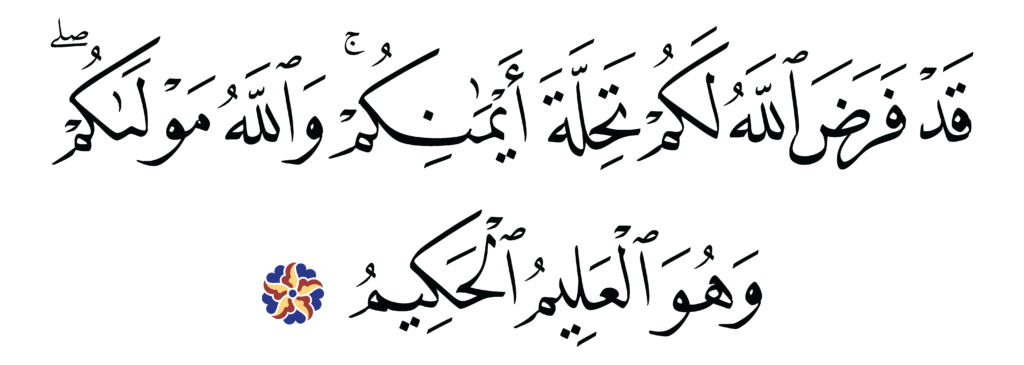 قَدْ فَرَضَ ٱللَّهُ لَكُمْ تَحِلَّةَ أَيْمَـٰنِكُمْ ۚ وَٱللَّهُ مَوْلَىٰكُمْ ۖ
وَهُوَ ٱلْعَلِيمُ ٱلْحَكِيمُ